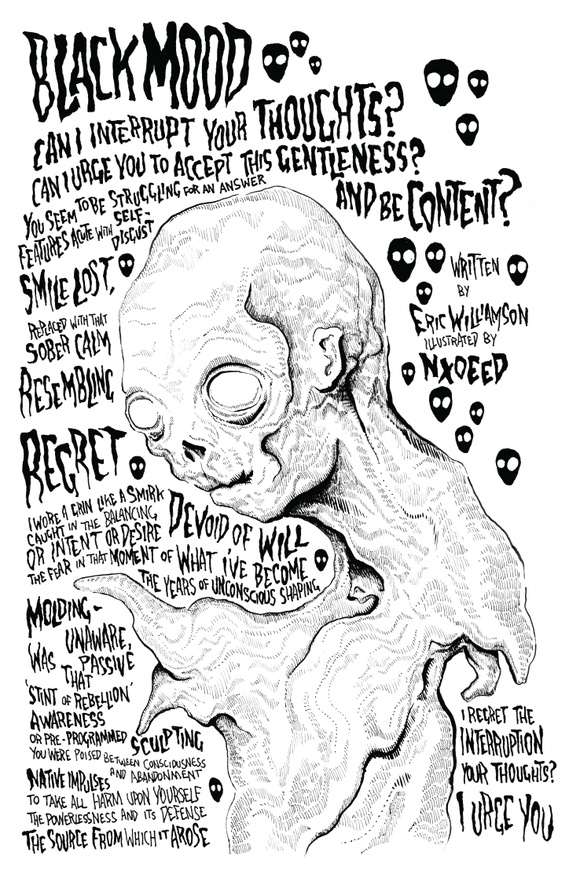 BLACK MOOD
CAN I INTERRUPT YOUR THOUGHTS?
CAN I URGE YOU TO ACCEPT THIS GENTLENESS?
AND BE CONTENT?
YOU SEEM TO BE STRUGGLING FOR AN ANSWER
FEATURES ACUTE WITH SELF-
DISGUST
SMILE LOST,
REPLACED WITH THAT
SOBER CALM
RESEMBLING
REGRET
WRITTEN
BY
ERIC WILLIAMSON
ILLUSTRATED BY
NXOEED
I WORE A GRIN LIKE A SMIRK
CAUGHT IN THE BALANCING
OR INTENT OR DESIRE
THE FEAR IN THAT MOMENT OF WHAT I'VE BECOME
DEVOID OF WILL
THE YEARS OF UNCONSCIOUS SHAPING
MOLDING-
UNAWARE,
WAS PASSIVE
THAT
'STINT OF REBELLION'
AWARENESS
OR PRE-PROGRAMMED SCULPTING
YOU WERE POISED BETWEEN CONSCIOUSNESS
AND ABANDONMENT
NATIVE IMPULSES
TO TAKE ALL HARM UPON YOURSELF
THE POWERLESSNESS AND ITS DEFENSE
THE SOURCE FROM WHICH IT AROSE
I REGRET THE
INTERRUPTION
YOUR THOUGHTS?
I URGE YOU